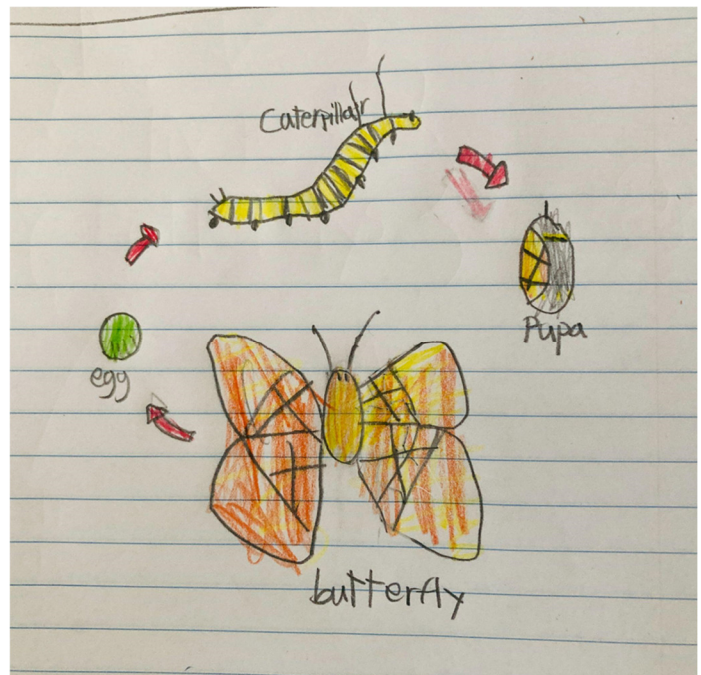 Caterpillar
Pupa
egg
butterfly